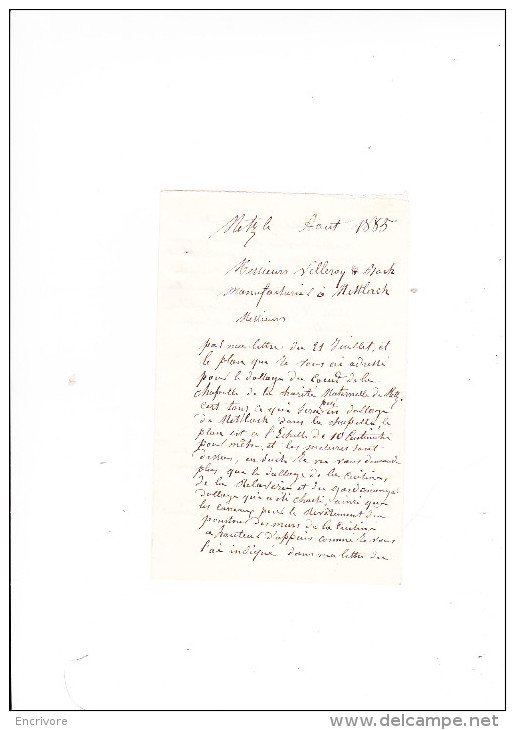 Metz le Aout 1885
Messieurs Villeroy & Boch
manufacturier à Mettlach
Messieurs
par ma lettre du 21 Juillet, et
le plan que Je vous ai adressé
pour le dallage du Coeur de la
chapelle de la charité Maternelle de Metz,
c'est tous ce qui sera posé en dallage
de Mettlach dans la chapelle, le
plan est a l'Echelle de 10 Centimetre
pour mètre, et les mesures sont
dessus, en suite Je ne vous demande
plus que le dallage de la Cuisine,
de la Relaverie et du gardemanger
dallage qui a été choisi, ainsi que
les carreaux pour le Revêtement du
pourtour des murs de la Cuisine
a hauteur d'appuis comme Je vous
l'ai indiqué dans ma lettre du
Encrivore
delcampe.net